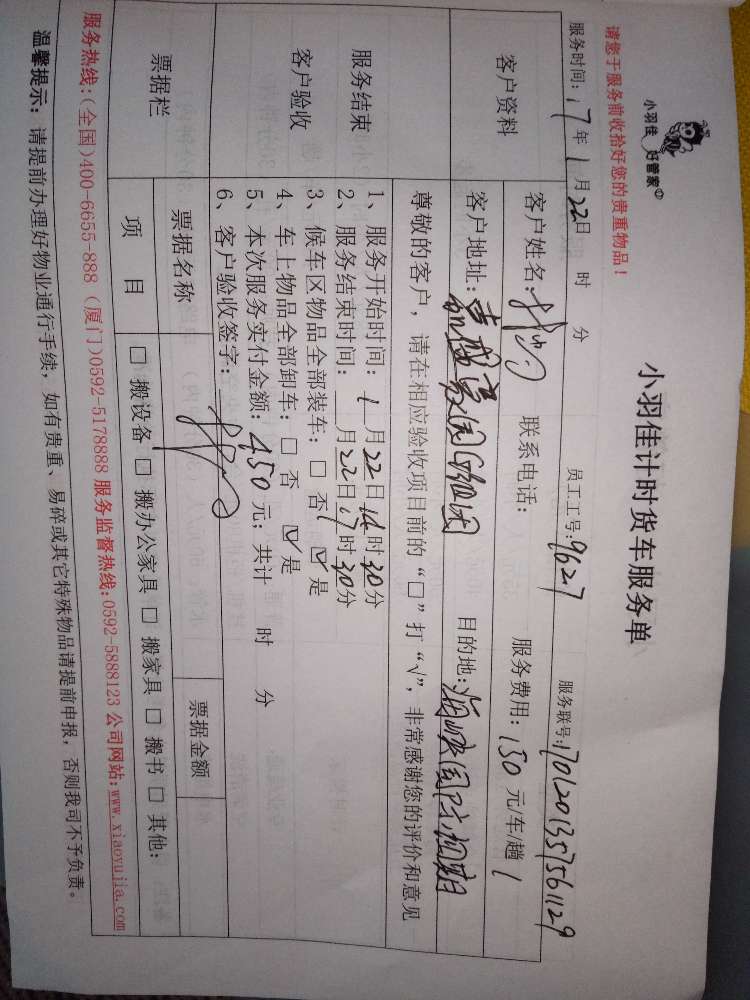 小羽佳 好管家
小羽佳计时货车服务单
请您于服务前收拾好您的贵重物品！
服务时间：17年1月22日 时 分 员工工号：9627 服务联号：1701201357561129
客户资料
客户姓名： 联系电话： 服务费用：150元/车/趟 1
客户地址： 目的地：
尊敬的客户，请在相应验收项目前的“□”打“√”，非常感谢您的评价和意见
服务结束
客户验收
1、服务开始时间：1月22日14时30分
2、服务结束时间： 月22日17时30分
3、候车区物品全部装车：□ 否 ☑ 是
4、车上物品全部卸车：□ 否 ☑ 是
5、本次服务实付金额：450元；共计 时 分
6、客户验收签字：
票据栏
票据名称 票据金额
项 目 □ 搬设备 □ 搬办公家具 □ 搬家具 □ 搬书 □ 其他：
服务热线：(全国)400-6655-888 (厦门)0592-5178888 服务监督热线:0592-5888123 公司网站:www.xiaoyujia.com
温馨提示：请提前办理好物业通行手续，如有贵重、易碎或其它特殊物品请提前申报，否则我司不予负责。